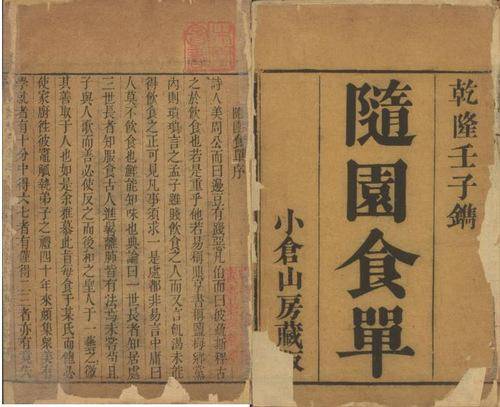 乾隆壬子鐫
隨園食單
小倉山房藏版
隨園食單序
詩人美周公而曰籩豆有踐惡凡伯而曰彼疏斯稗古
之於飲食也若是重乎他若易稱鼎烹書稱鹽梅鄉黨
內則瑣瑣言之孟子雖賤飲食之人而又言飢渴未能
得飲食之正可見凡事須求一是處都非易言中庸曰
人莫不飲食也鮮能知味也典論曰一世長者知居處
三世長者知服食古人進鬐離肺皆有法焉未嘗苟且
子與人歌而善必使反之而後和之聖人于一藝之微
其善取于人也如是余雅慕此旨每食于某氏而飽必
使家廚往彼竈觚執弟子之禮四十年來頗集衆美有
學就者有十分中得六七者有僅得二三者亦有竟失